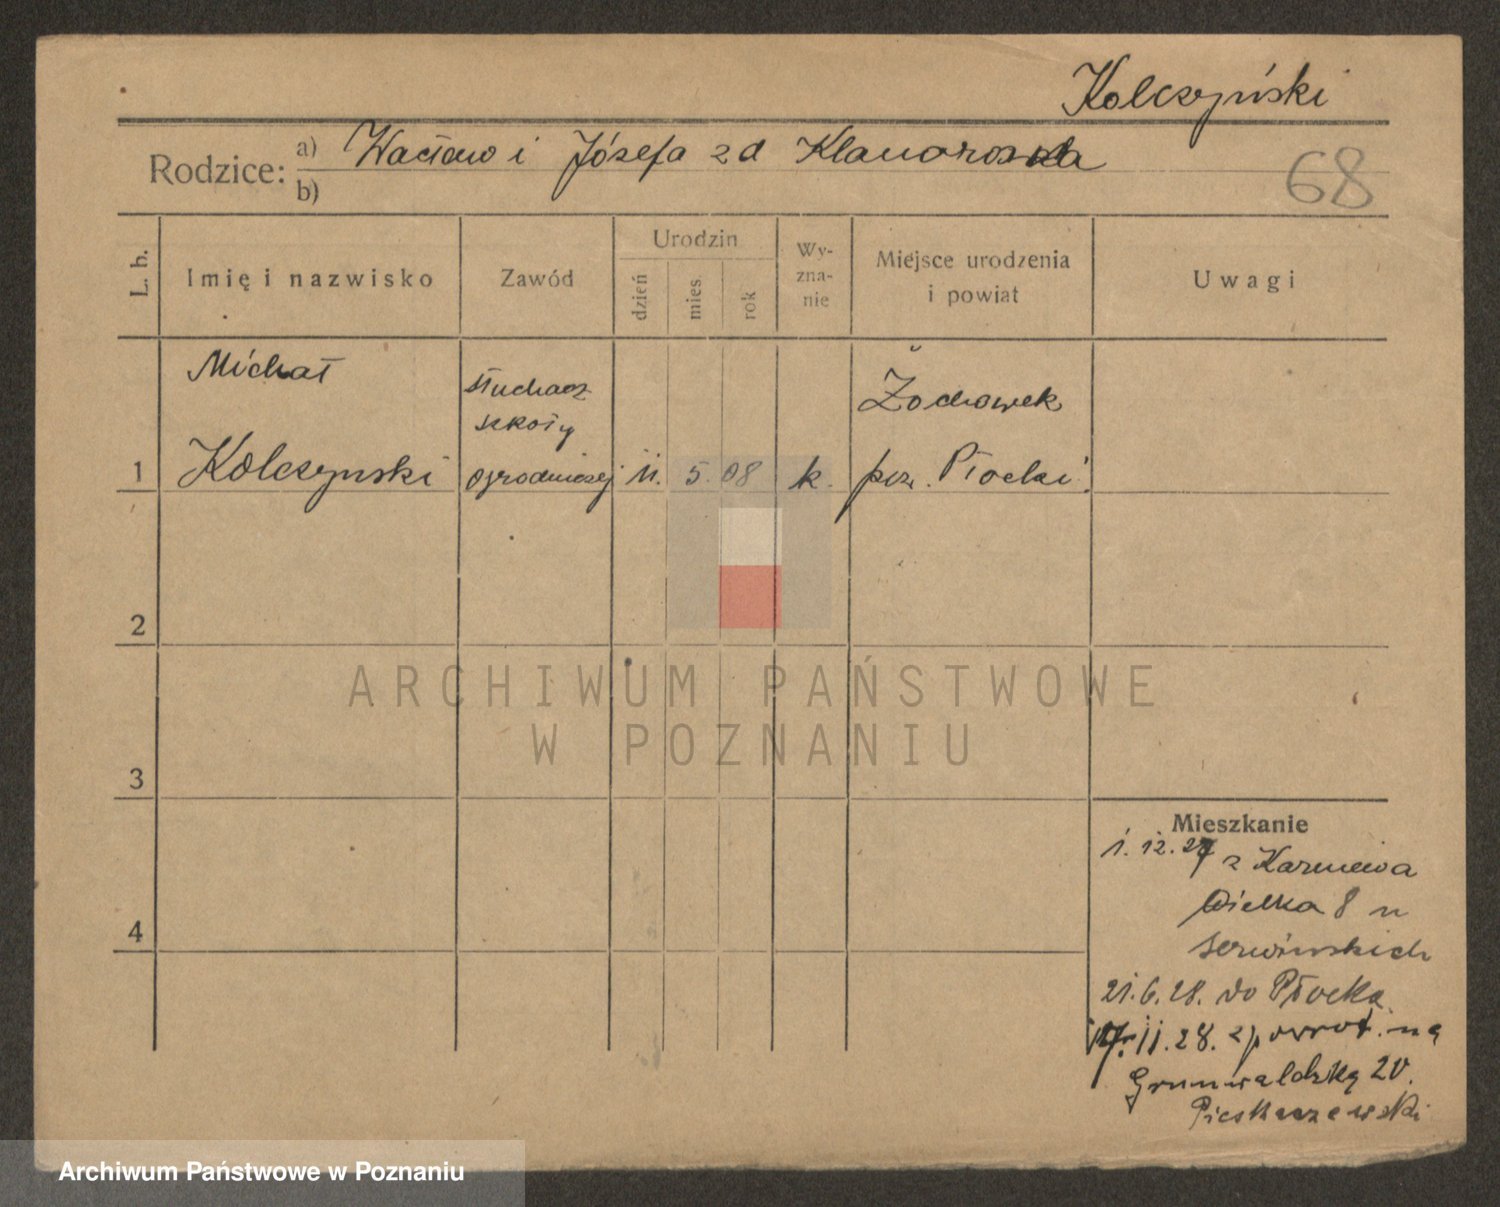 Kolczyński
Rodzice: a) Wacław i Józefa z d
b)
68
L. b.
Imię i nazwisko
Zawód
Urodzin
dzień
mies.
rok
Wy-
zna-
nie
Miejsce urodzenia
i powiat
Uwagi
Michał
Kolczynski
słuchacz
szkoły
ogrodniczej
11. 5. 08
k.
Żochowek
pow. Płocki.
1
2
3
4
ARCHIWUM PAŃSTWOWE
W POZNANIU
Mieszkanie
1. 12. 27 z Karniewa
Wielka 8 u
21. 6. 28. do Płocka
17. 11. 28. z powrot. na
Grunwaldzką 20.
Archiwum Państwowe w Poznaniu